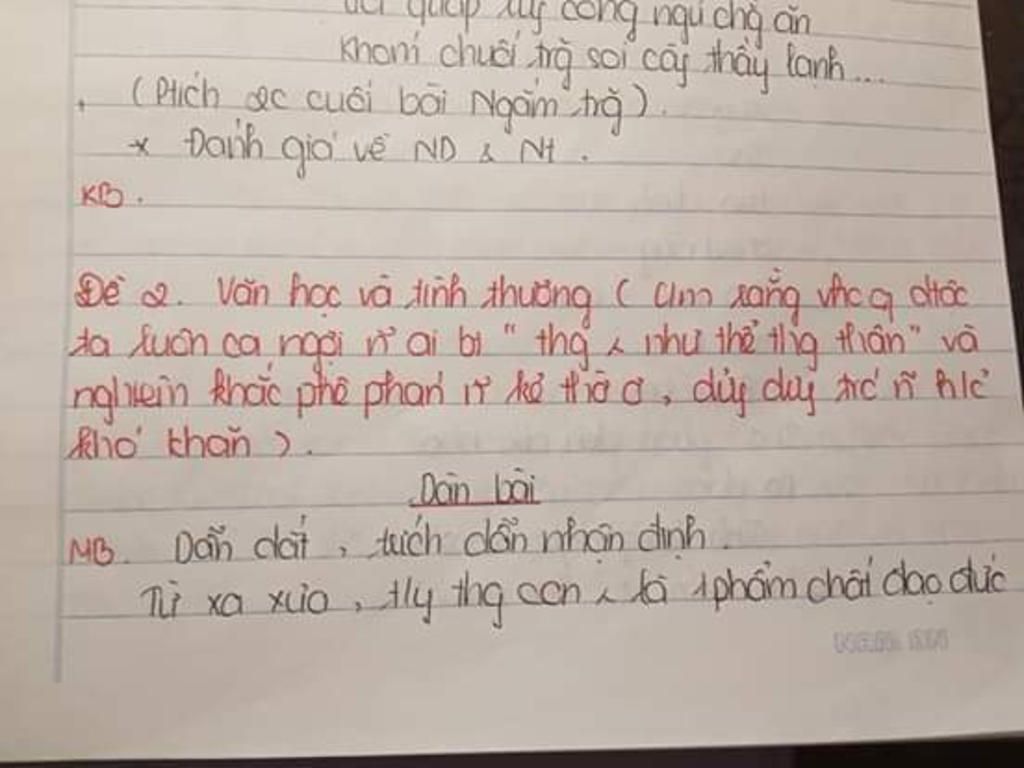 quáp xuy công ngủ chg ăn
Khom chuối trg soi cây thầy lạnh...
(Ptích 2c cuối bài Ngắm trg).
* Đánh giá về ND & Nt.
KB.
Đề 2. Văn học và tình thương ( C/m rằng vhc q dtộc
ta luôn ca ngợi n~ ai bt " thg ng như thể thg thân" và
nghiêm khắc phê phán n~ kẻ thờ ơ, dửng dưng trc n~ h/c
khó khăn ).
Dàn bài
MB. Dẫn dắt, trích dẫn nhận định.
Từ xa xưa, t/y thg con ng là 1 phẩm chất đạo đức